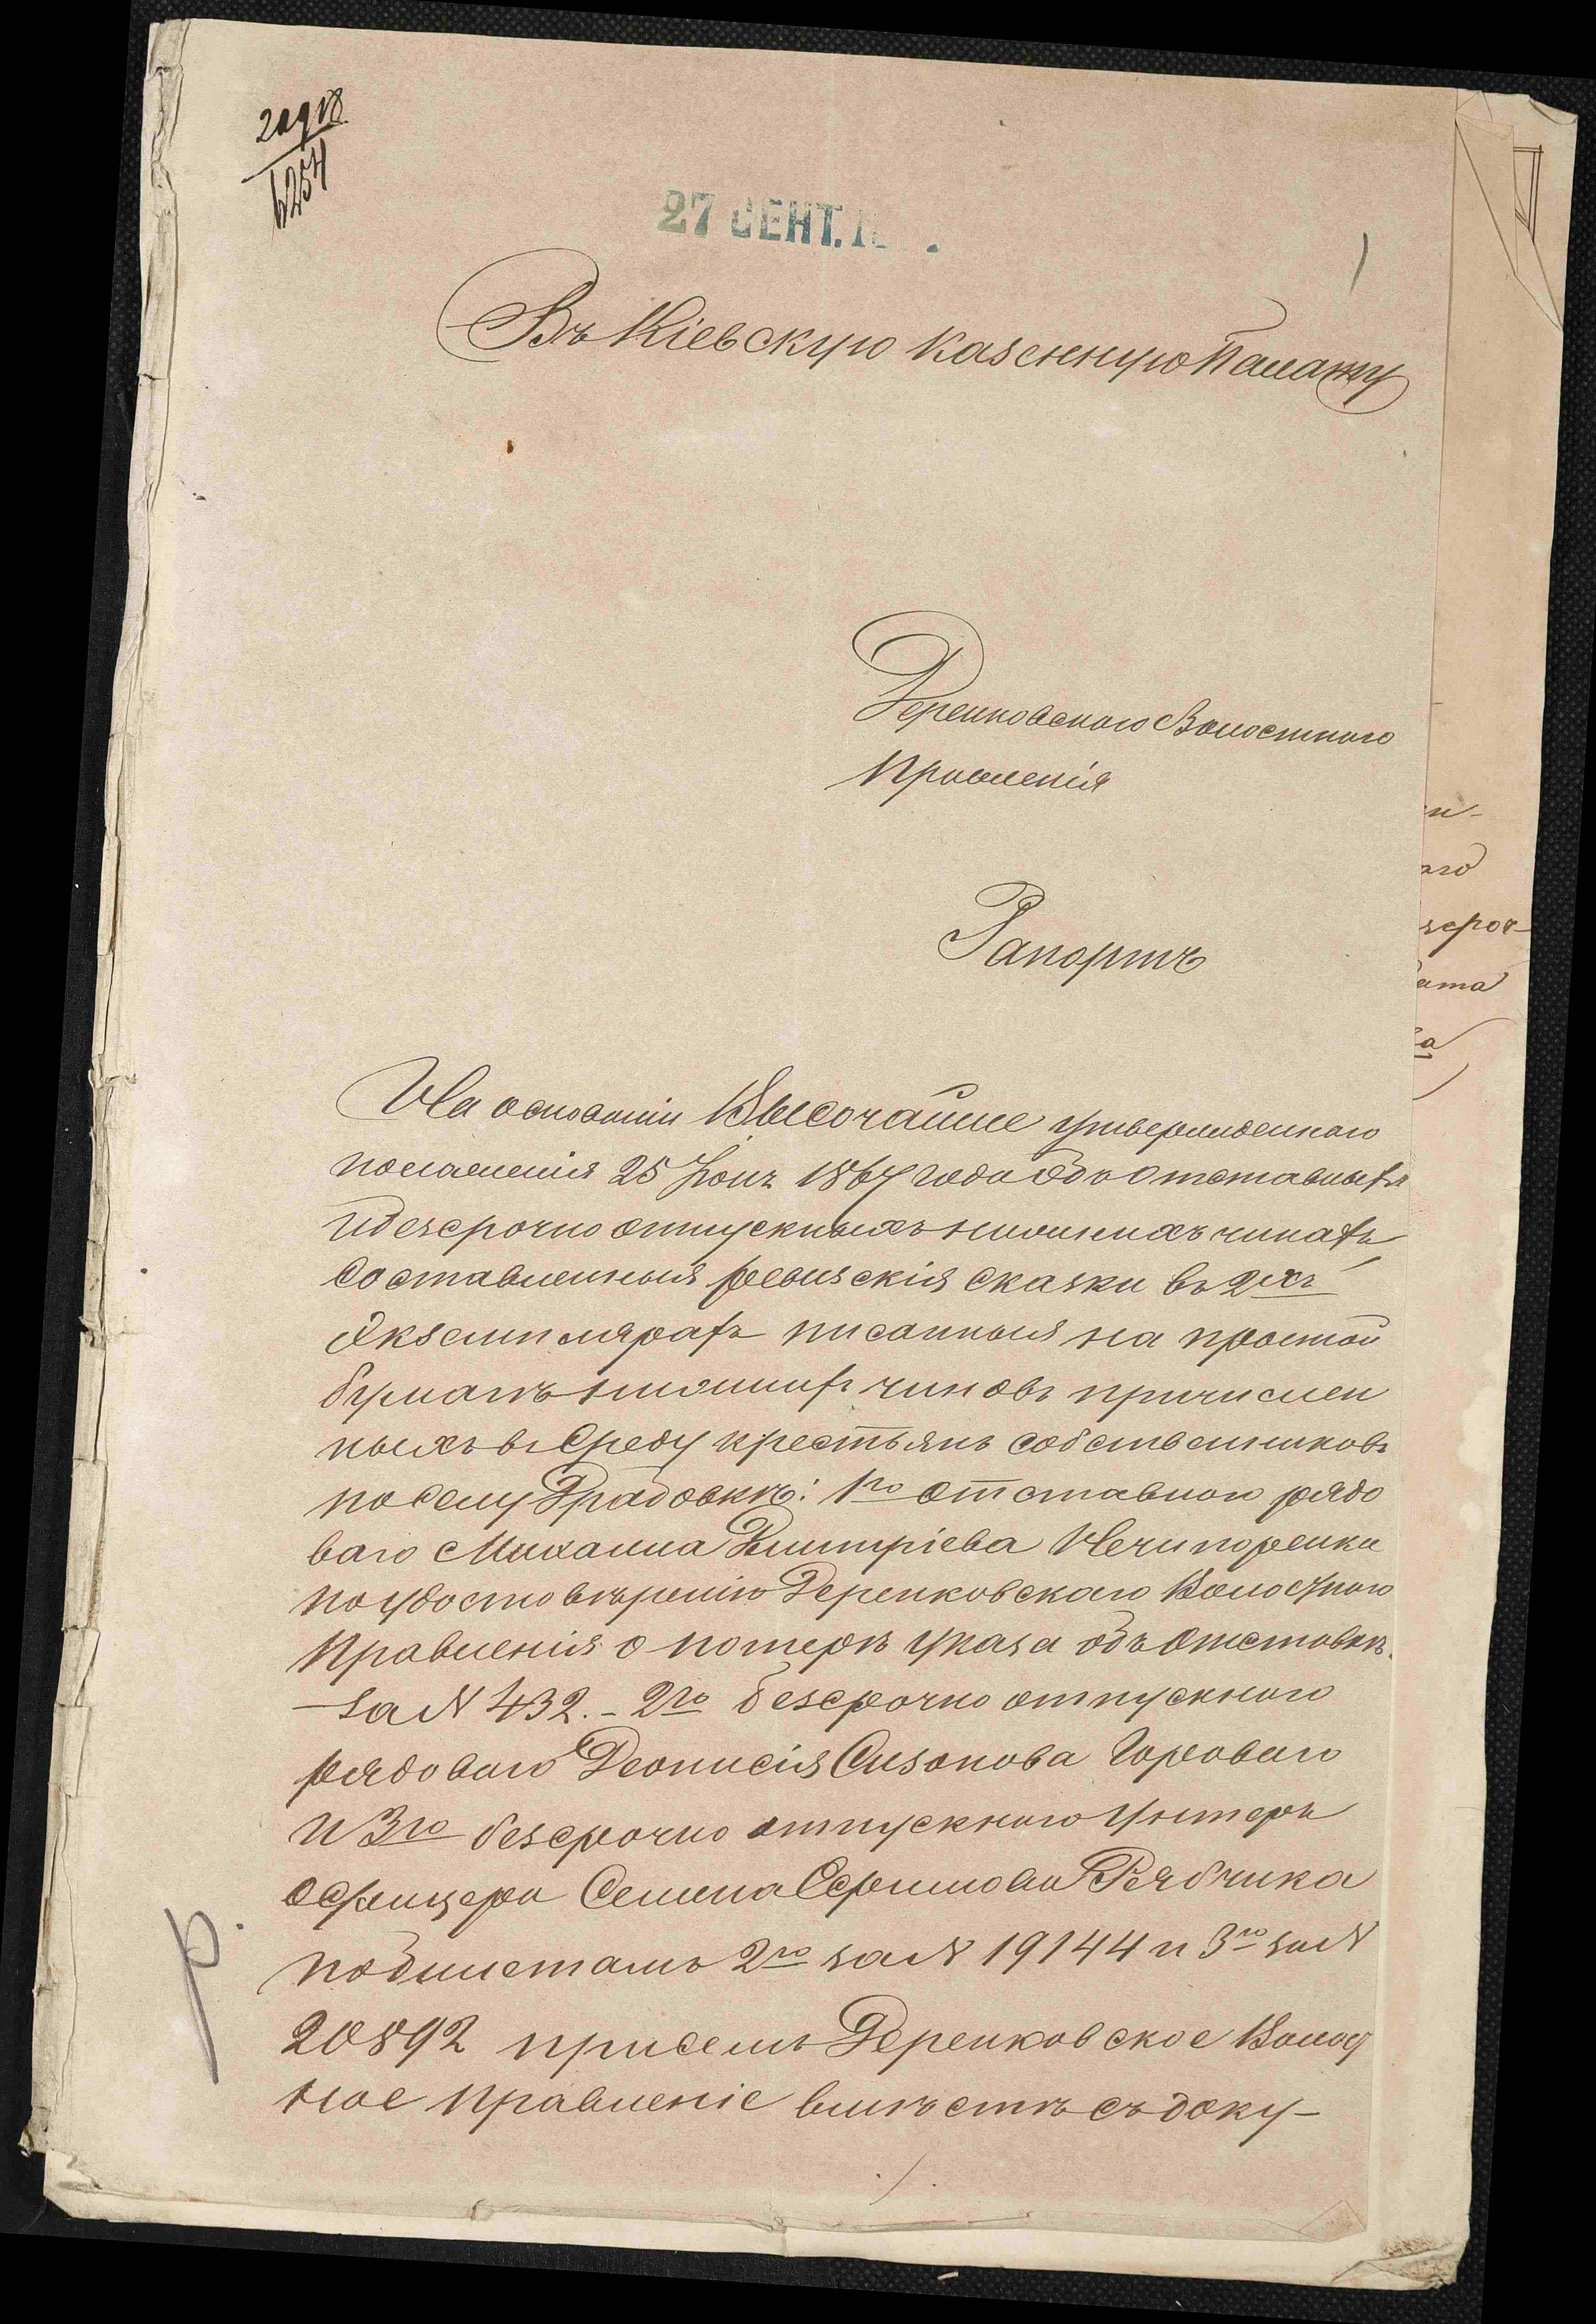 27 СЕНТ. 1
Въ Кіевскую Казенную Палату
Деренковскаго Волостного
Правленія
Рапортъ
На основаніи Высочайше утвержденнаго
положенія 25 Іюня 1867 года объ отставныхъ
и безсрочно отпускныхъ нижнихъ чинахъ
составленныя ревизскія сказки въ 2хъ
экземплярахъ писанныя на простой
бумагѣ нижнихъ чиновъ причислен
ныхъ въ среду крестьянъ собственниковъ
по селу Градовкѣ: 1го отставного рядо
ваго Михаила Дмитріева Нечипоренки
по удостовѣренію Деренковскаго Волостного
Правленія о потерѣ указа объ отставкѣ
за N 432. - 2го безсрочно отпускного
рядоваго Деонисія Сизонова Горового
и 3го безсрочно отпускного Унтеръ
офицера Семена Рябчика
по билетамъ 2го за N 19144 и 3го за N
20892 при семъ Деренковское Волост
ное Правленіе вмѣстѣ съ доку-